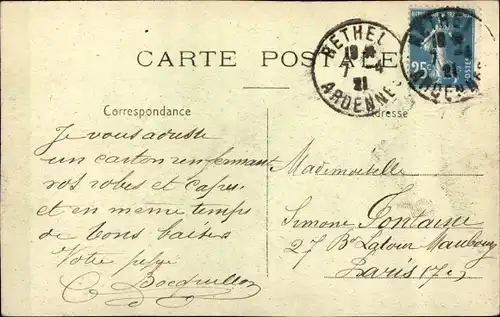 CARTE POSTALE
RETHEL
7 - 4
21
ARDENNES
RETHEL
21
ARDENNES
25c
POSTES
Correspondance
Adresse
Je vous adresse
un carton renfermant
vos robes et capes
et en même temps
de bons baisers
Votre
Bocquillon
Mademoiselle
Simone Fontaine
27 Bd Latour Maubourg
Paris (7e)